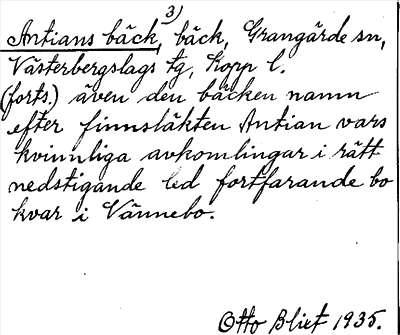 3)
Antians bäck, bäck, Grangärde sn,
Västerbergslags tg, Kopp l.
(forts.) även den bäcken namn
efter finnsläkten Antian vars
kvinnliga avkomlingar i rätt
nedstigande led fortfarande bo
kvar i Vännebo.
Otto Blixt 1935.